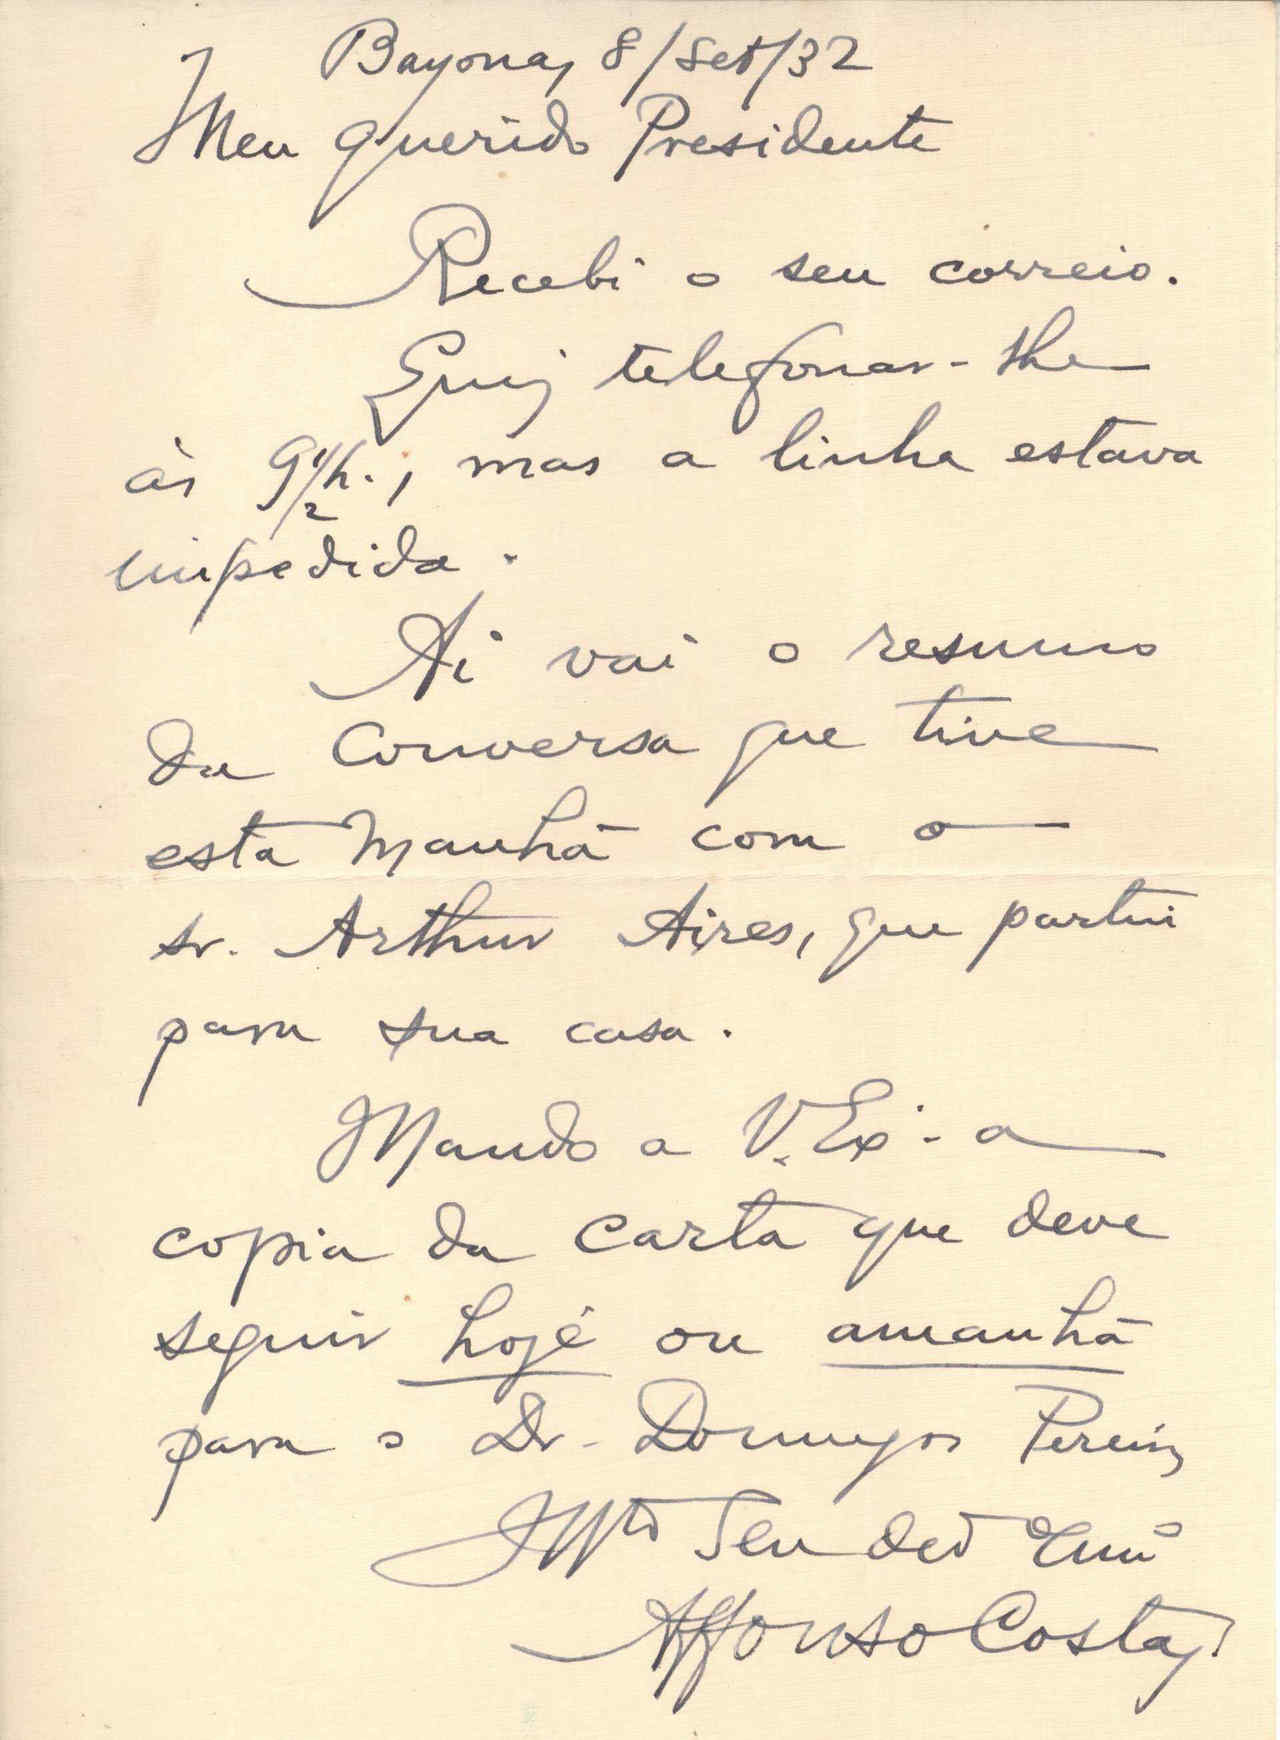 Bayona, 8/Set/32
Meu querido Presidente
Recebi o seu correio.
Quiz telefonar-lhe
às 9 1/2 h., mas a linha estava
impedida.
Ai vai o resumo
da conversa que tive
esta manhã com o
sr. Arthur Aires, que partiu
para sua casa.
Mando a V. Exª. a
copia da carta que deve
seguir hoje ou amanhã
para o Dr. Domingos Pereira
Mto Seu ded
Affonso Costa